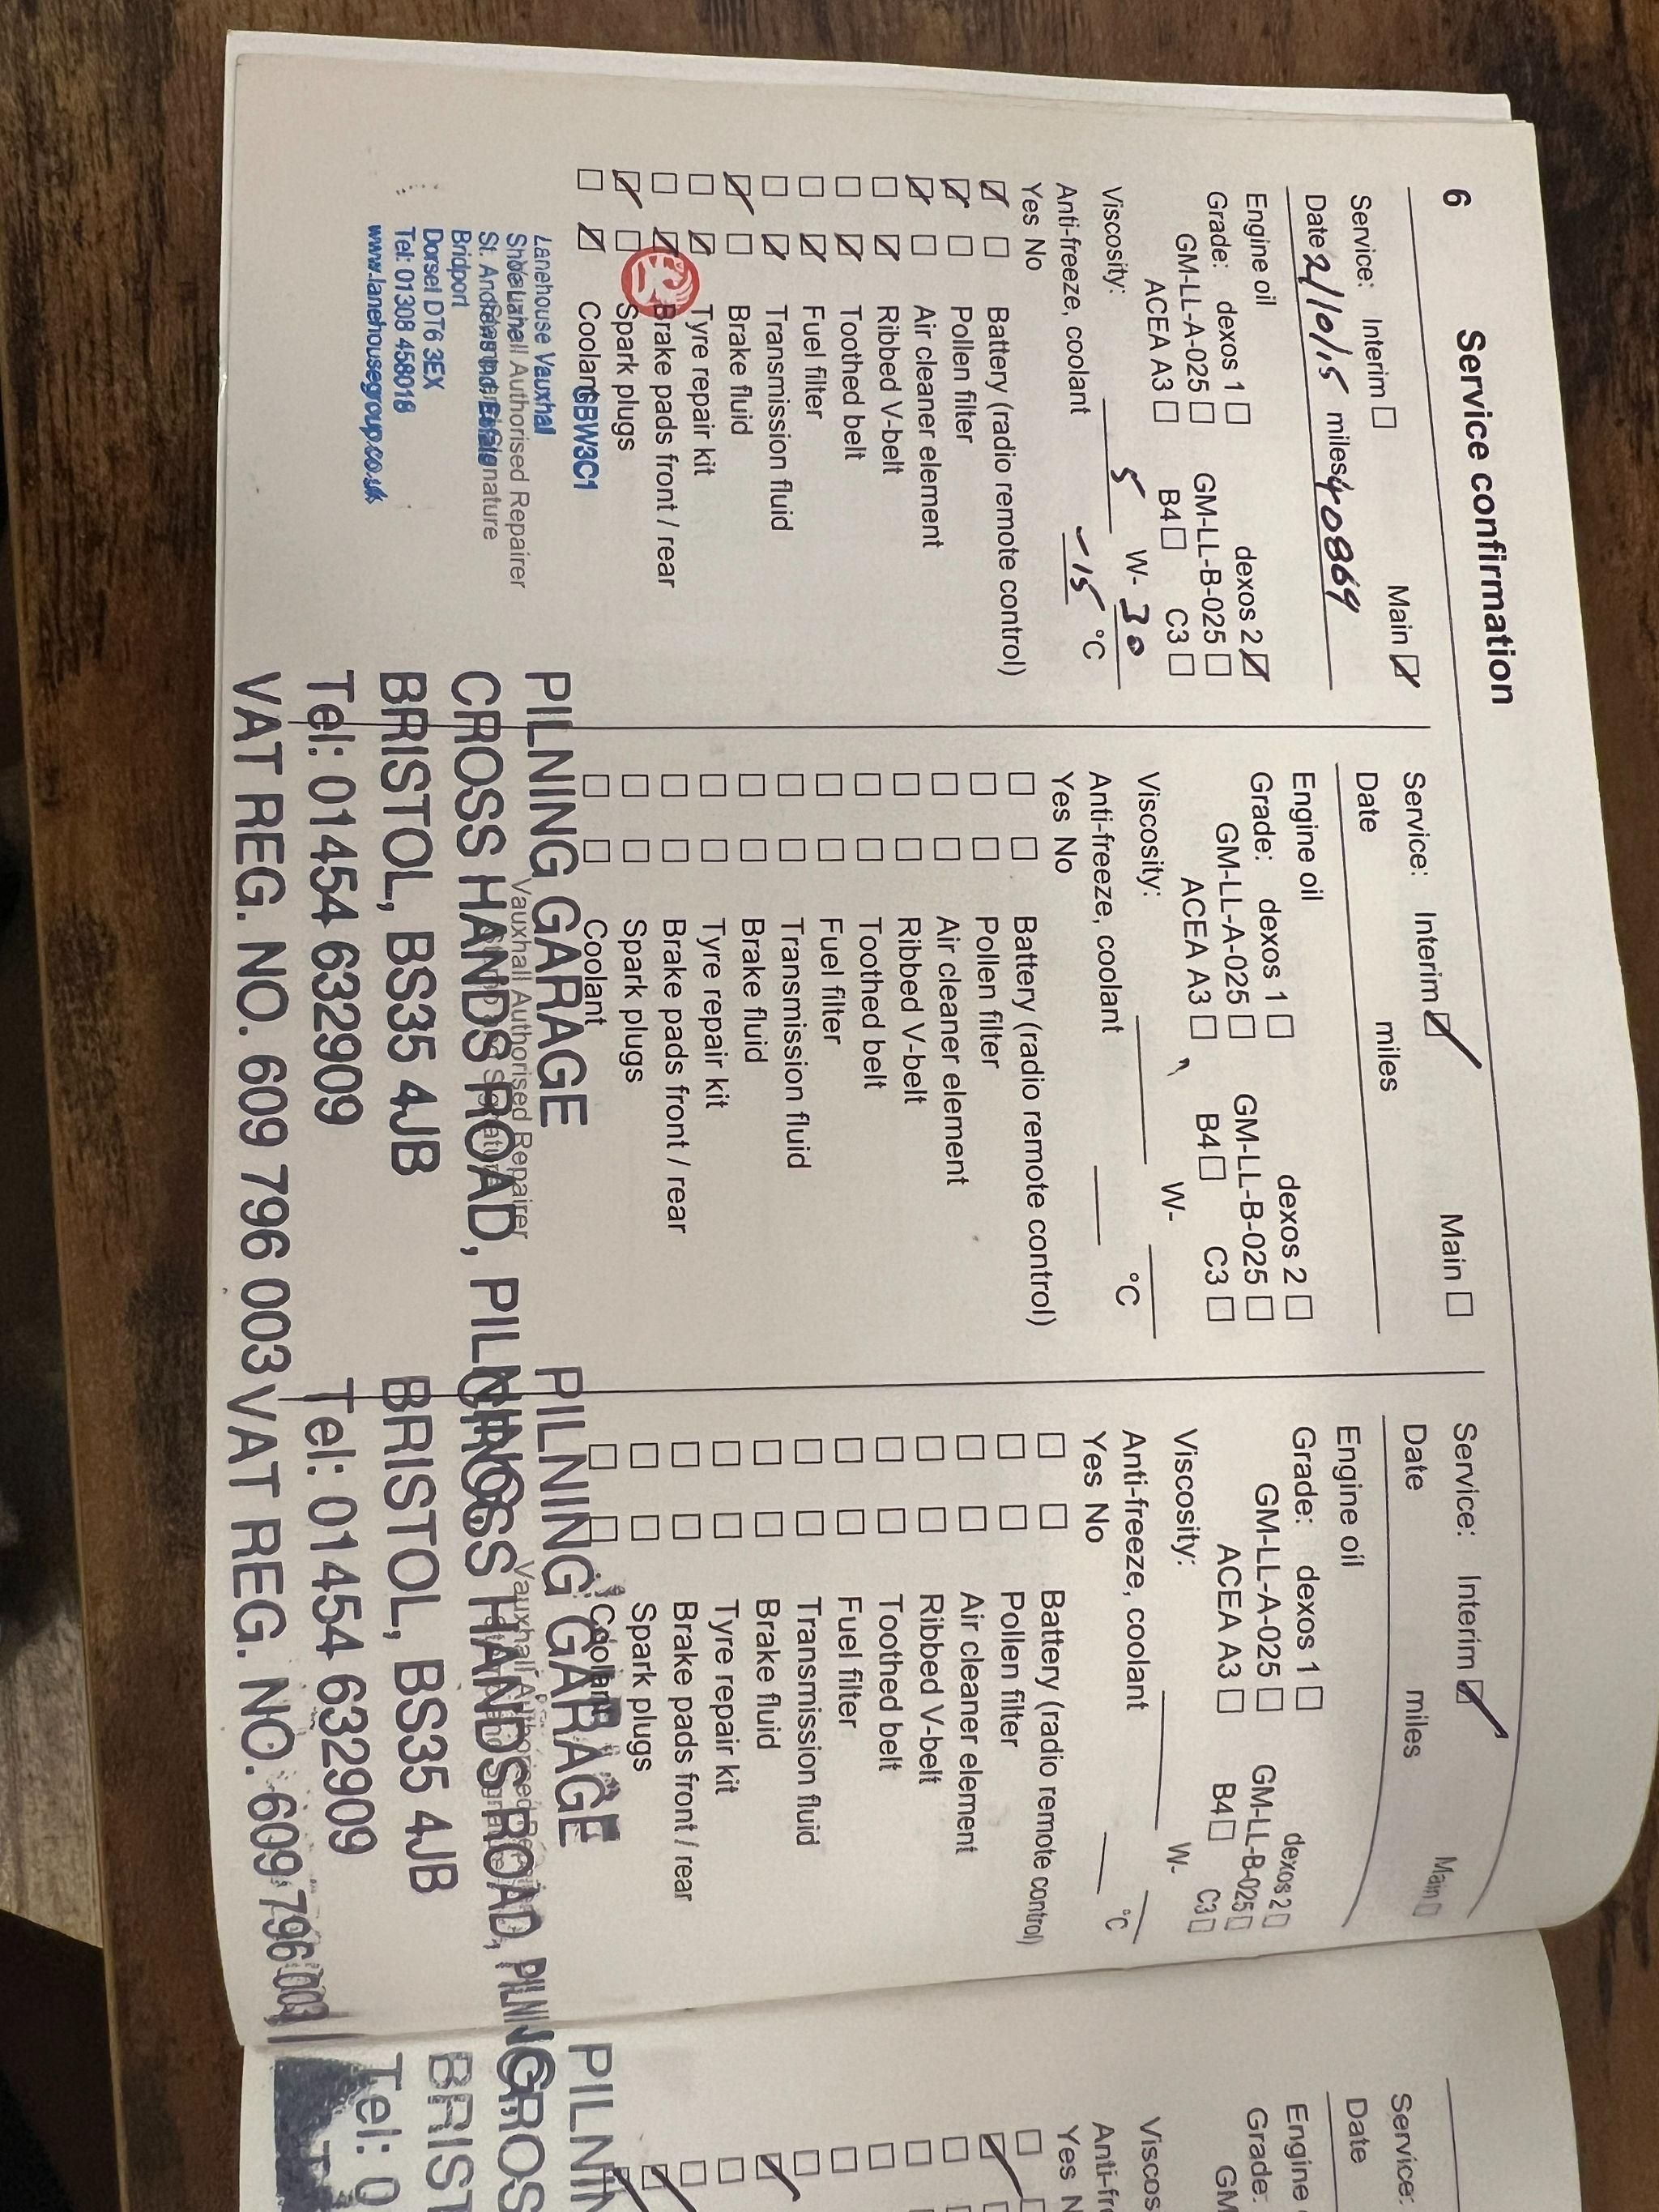 6 Service confirmation
Service: Interim Main
Date 2/10/15 miles 40869
Engine oil
Grade: dexos 1 dexos 2
GM-LL-A-025 GM-LL-B-025
ACEA A3 B4 C3
Viscosity: 5 W- 30
Anti-freeze, coolant -15 °C
Yes No
Battery (radio remote control)
Pollen filter
Air cleaner element
Ribbed V-belt
Toothed belt
Fuel filter
Transmission fluid
Brake fluid
Tyre repair kit
Brake pads front / rear
Spark plugs
Coolant GBW3C1
Lanehouse Vauxhall
Vauxhall Authorised Repairer
Bridport
Dorset DT6 3EX
Tel: 01308 458018
www.lanehousegroup.co.uk
Service: Interim Main
Date miles
Engine oil
Grade: dexos 1 dexos 2
GM-LL-A-025 GM-LL-B-025
ACEA A3 B4 C3
Viscosity: W-
Anti-freeze, coolant °C
Yes No
Battery (radio remote control)
Pollen filter
Air cleaner element
Ribbed V-belt
Toothed belt
Fuel filter
Transmission fluid
Brake fluid
Tyre repair kit
Brake pads front / rear
Spark plugs
Coolant
Vauxhall Authorised Repairer
PILNING GARAGE
CROSS HANDS ROAD, PILNING
BRISTOL, BS35 4JB
Tel: 01454 632909
VAT REG. NO. 609 796 003
Service: Interim Main
Date miles
Engine oil
Grade: dexos 1 dexos 2
GM-LL-A-025 GM-LL-B-025
ACEA A3 B4 C3
Viscosity: W-
Anti-freeze, coolant °C
Yes No
Battery (radio remote control)
Pollen filter
Air cleaner element
Ribbed V-belt
Toothed belt
Fuel filter
Transmission fluid
Brake fluid
Tyre repair kit
Brake pads front / rear
Spark plugs
Coolant
Vauxhall Authorised
PILNING GARAGE
CROSS HANDS ROAD, PILNING
BRISTOL, BS35 4JB
Tel: 01454 632909
VAT REG. NO. 609 796 003
Service:
Date
Engine
Grade:
GM
Viscos
Anti-fr
Yes N
PILNIN
CROS
BRIST
Tel: 0